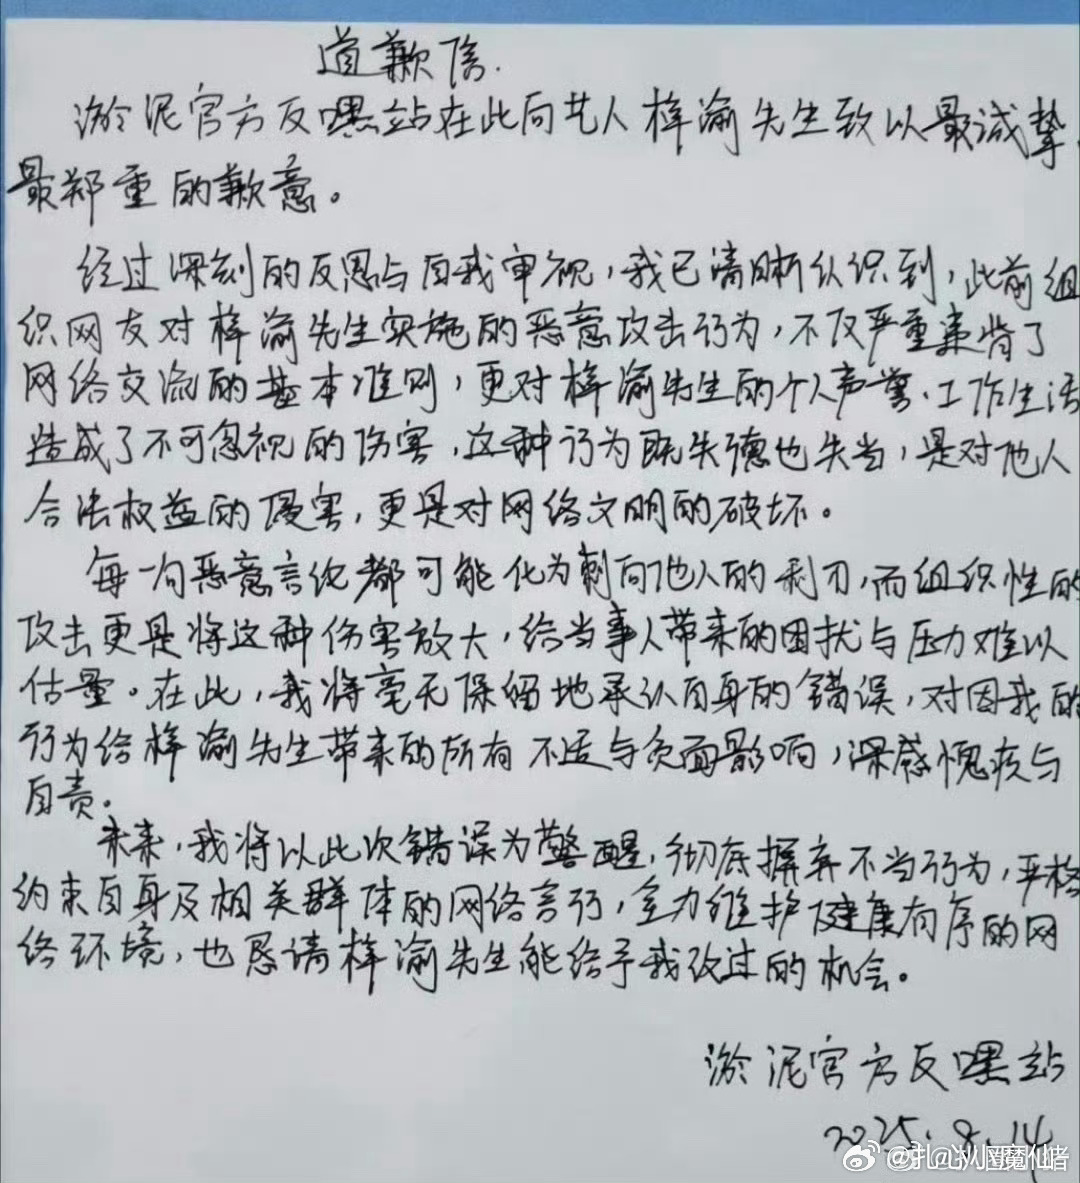 道歉信.
淤泥官方反嘿站在此向艺人梓渝先生致以最诚挚、
最郑重的歉意。
经过深刻的反思与自我审视，我已清晰认识到，此前组
织网友对梓渝先生实施的恶意攻击行为，不仅严重违背了
网络交流的基本准则，更对梓渝先生的个人声誉、工作生活
造成了不可忽视的伤害，这种行为既失德也失当，是对他人
合法权益的侵害，更是对网络文明的破坏。
每一句恶意言论都可能化为刺向他人的利刃，而组织性的
攻击更是将这种伤害放大，给当事人带来的困扰与压力难以
估量。在此，我将毫无保留地承认自身的错误，对因我的
行为给梓渝先生带来的所有不适与负面影响，深感愧疚与
自责。
未来，我将以此次错误为警醒，彻底摒弃不当行为，严格
约束自身及相关群体的网络言行，全力维护健康有序的网
络环境，也恳请梓渝先生能给予我改过的机会。
淤泥官方反嘿站
2025.8.14